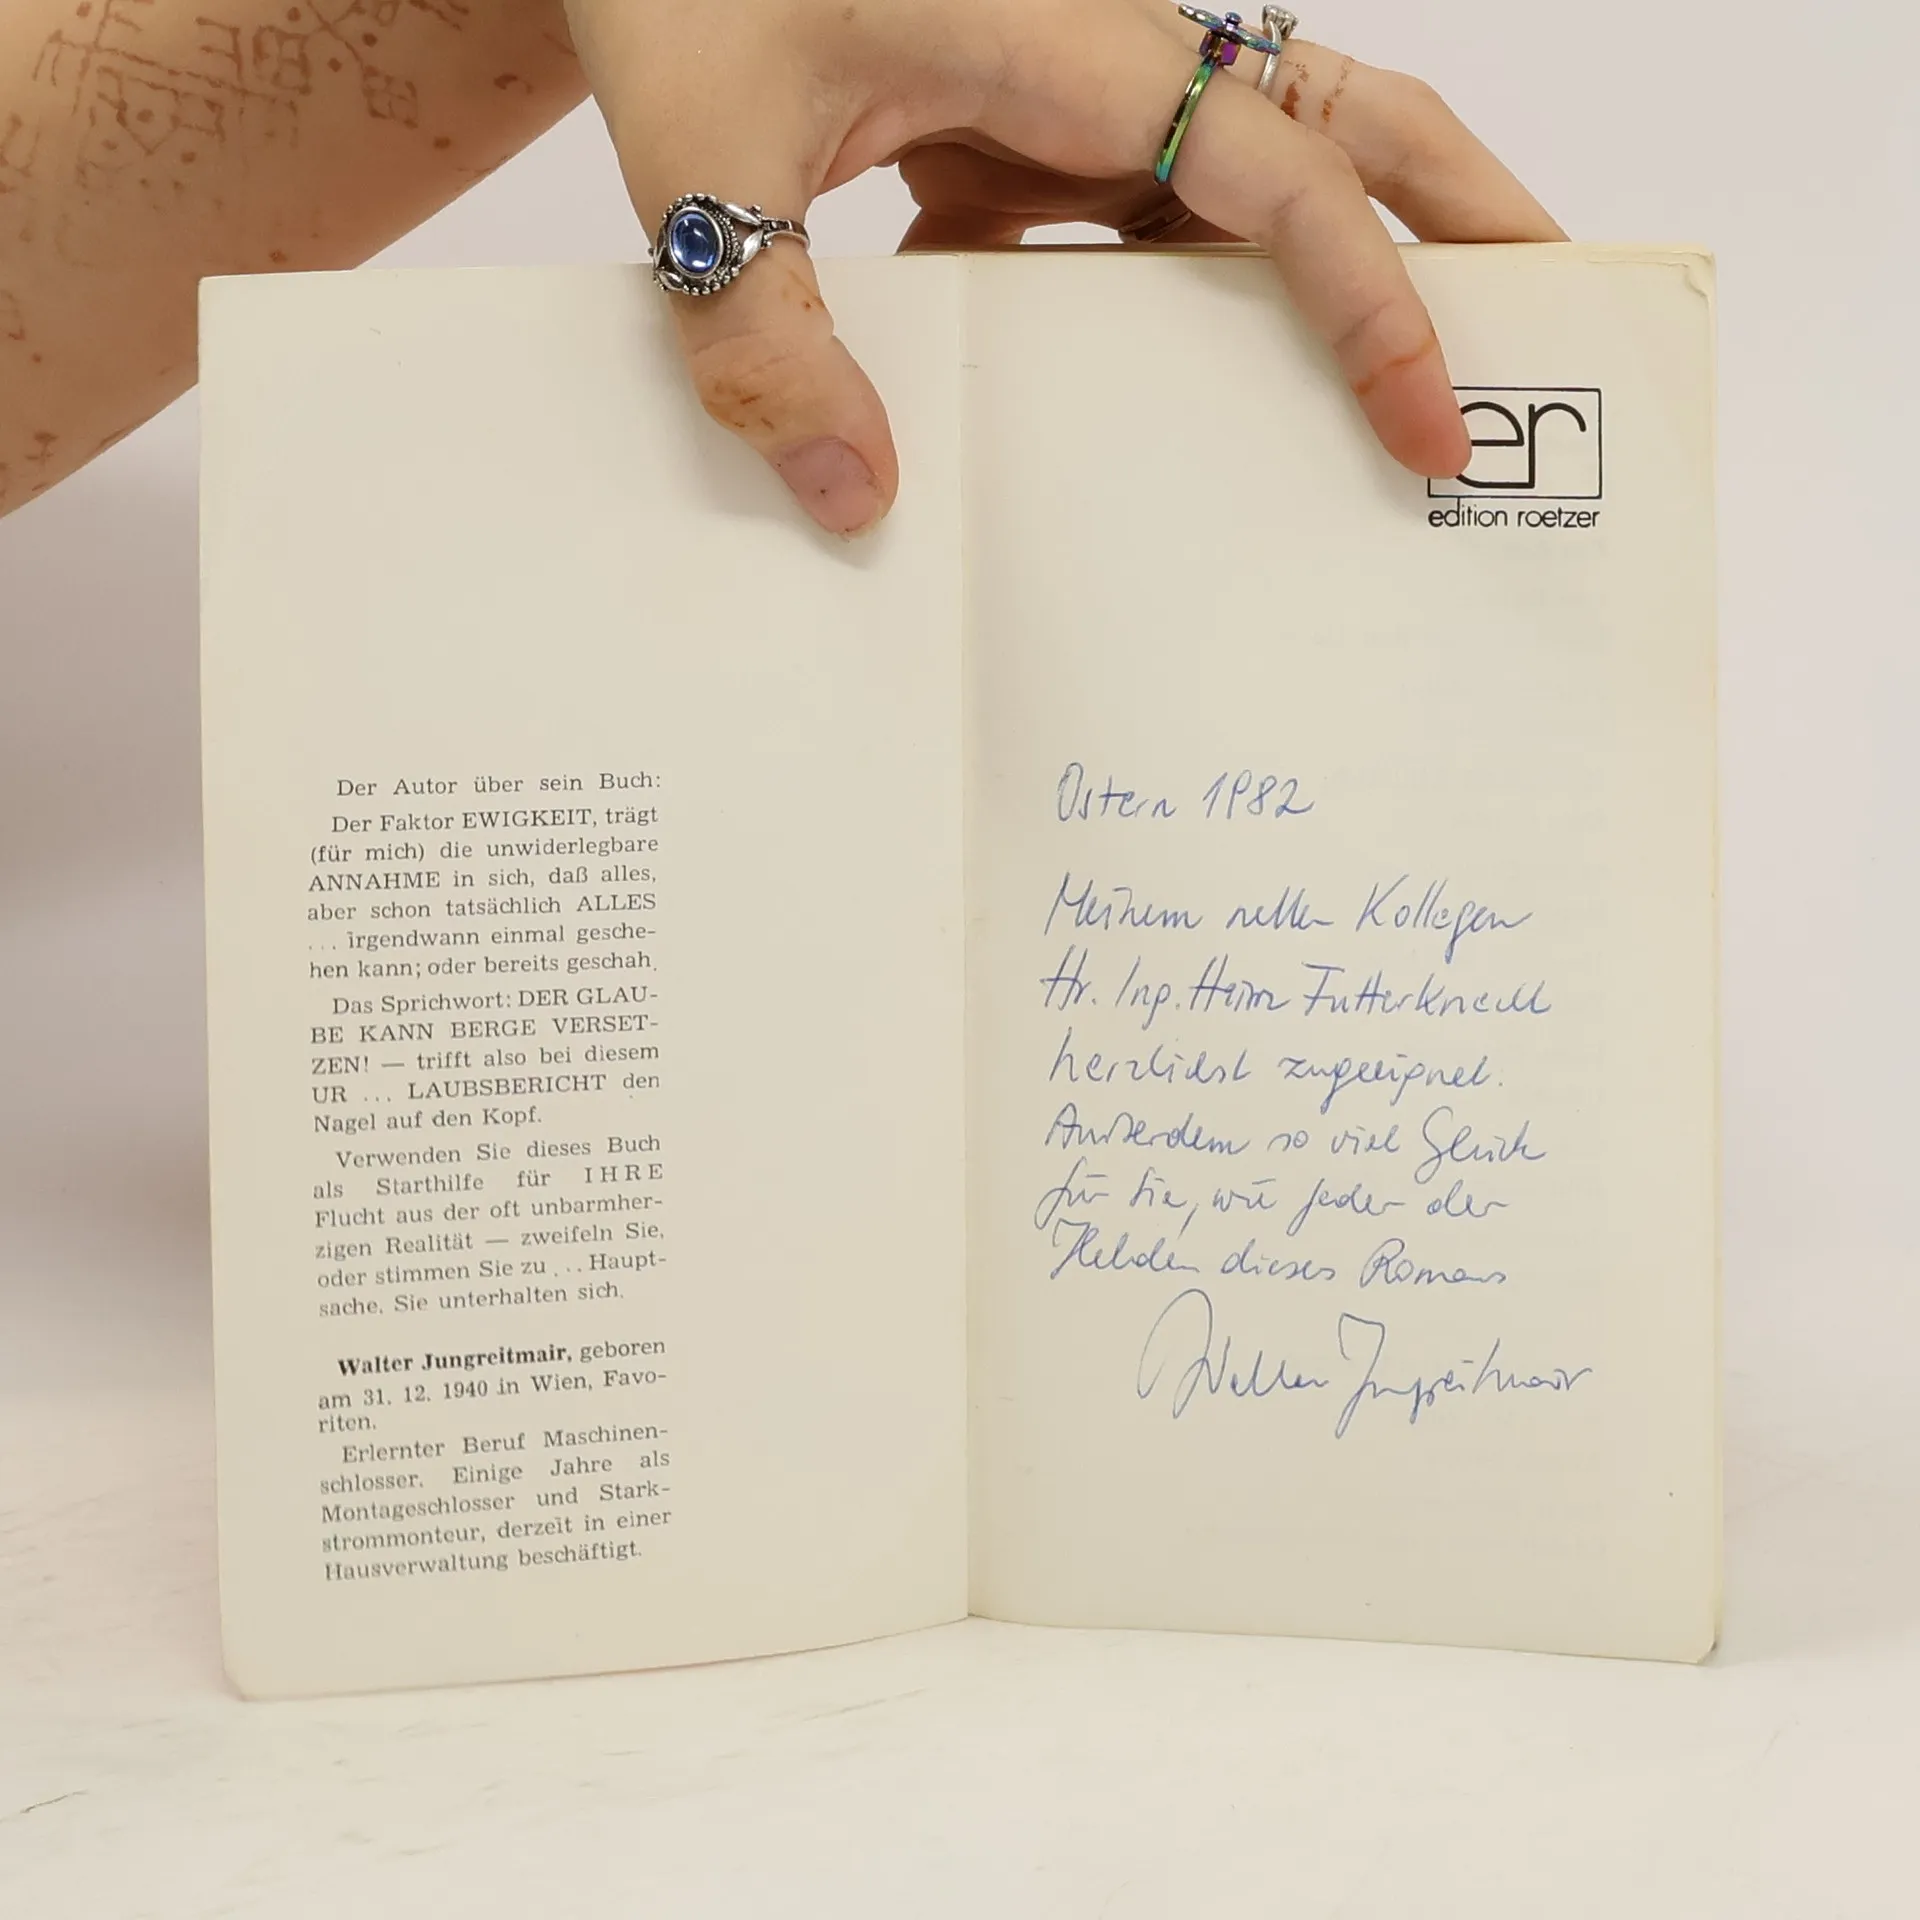 Der Autor über sein Buch:
Der Faktor EWIGKEIT, trägt
(für mich) die unwiderlegbare
ANNAHME in sich, daß alles,
aber schon tatsächlich ALLES
... irgendwann einmal gesche-
hen kann; oder bereits geschah.
Das Sprichwort: DER GLAU-
BE KANN BERGE VERSET-
ZEN! — trifft also bei diesem
UR ... LAUBSBERICHT den
Nagel auf den Kopf.
Verwenden Sie dieses Buch
als Starthilfe für IHRE
Flucht aus der oft unbarmher-
zigen Realität — zweifeln Sie,
oder stimmen Sie zu ... Haupt-
sache, Sie unterhalten sich.
Walter Jungreitmair, geboren
am 31. 12. 1940 in Wien, Favo-
riten.
Erlernter Beruf Maschinen-
schlosser. Einige Jahre als
Montageschlosser und Stark-
strommonteur, derzeit in einer
Hausverwaltung beschäftigt.
er
edition roetzer
Ostern 1982
Meinem netten Kollegen
Hr. Ing. Heinz Futterknecht
herzlichst zugeeignet.
Außerdem so viel Glück
für Sie, wie jeder der
Helden dieses Romans
Walter Jungreitmair